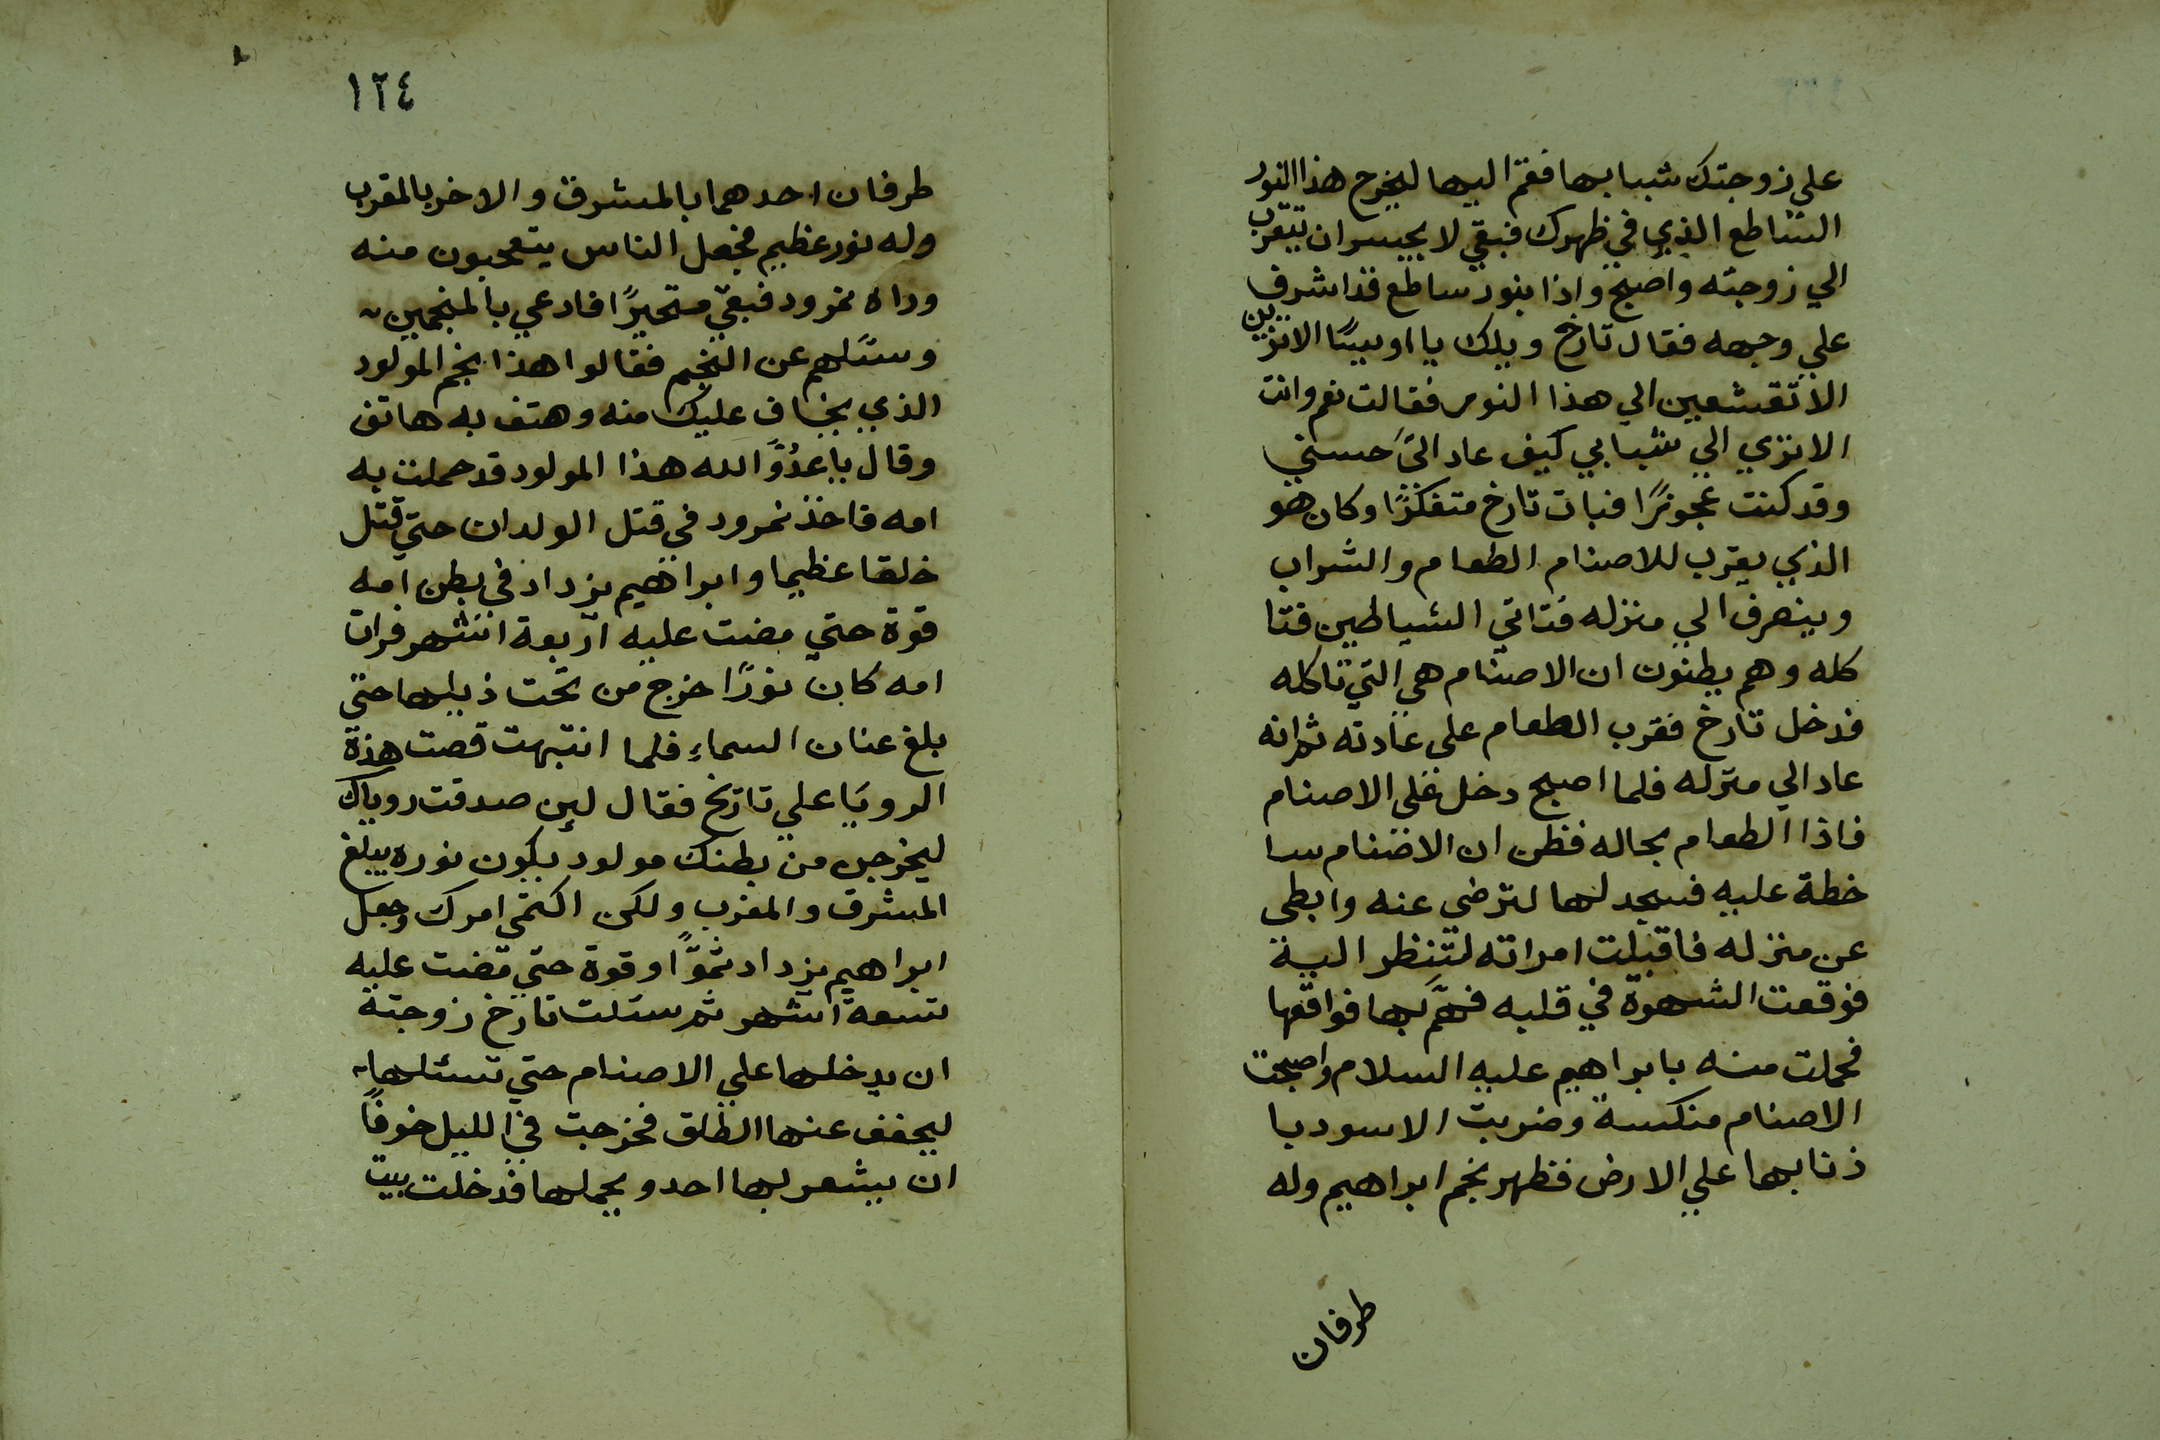 علي زوجتك شبابها فقم اليها ليخرج هذا النور
الساطع الذي في ظهرك فبقي لا يجسران يتقرب
الي زوجته واصبح واذا بنور ساطع قد اشرف
علي وجهه فقال تارخ ويلك يا اوبيتا الاتزين
الا تقشعين الي هذا النور فقالت نعم وانت
الاتزي الي شبابي كيف عاد اليَّ حسني
وقد كنت عجوزًا فبات تارخ متفكرًا وكان هو
الذي يقرب للاصنام الطعام والشراب
وينصرف الي منزله فتاتي الشياطين فتا
كله وهم يظنون ان الاصنام هي التي تاكله
فدخل تارخ فقرب الطعام على عادته ثم انه
عاد الي منزله فلما اصبح دخل على الاصنام
فاذا الطعام بحاله فظن ان الاصنام سا
خطة عليه فسجد لها لترضى عنه وابطى
عن منزله فاقبلت امراته لتنظر اليه
فوقعت الشهوة في قلبه فهمّ بها فواقعها
فحملت منه بابراهيم عليه السلام واصبحت
الاصنام منكسة وضربت الاسود با
ذنابها علي الارض فظهر نجم ابراهيم وله
طرفان
١٢٤
طرفان احدهما بالمشرق والاخر بالمغرب
وله نور عظيم فجعل الناس يتعجبون منه
وراه نمرود فبقي متحيرًا فادعي بالمنجمين
وسئلهم عن النجم فقالوا هذا نجم المولود
الذي يخاف عليك منه وهتف به هاتف
وقال يا عدُوَّ الله هذا المولود قد حملت به
امه فاخذ نمرود في قتل الولدان حتي قتل
خلقا عظيما وابراهيم يزداد في بطن امه
قوة حتي مضت عليه اربعة اشهر فرات
امه كان نورًا خرج من تحت ذيلها حتى
بلغ عنان السماءِ فلما انتبهت قصت هذة
الرويَا علي تارخ فقال لئن صدقت روياك
ليخرجن من بطنك مولود يكون نوره يبلغ
المشرق والمغرب ولكن اكتمي امرك وجعل
ابراهيم يزداد نموًّا وقوة حتي مضت عليه
تسعة اشهر ثم سئلت تارخ زوجتة
ان يدخلها علي الاصنام حتي تسئلها
ليخفف عنها الطلق فخرجت في الليل خوفًا
ان يشعر بها احد ويحملها فدخلت بيت